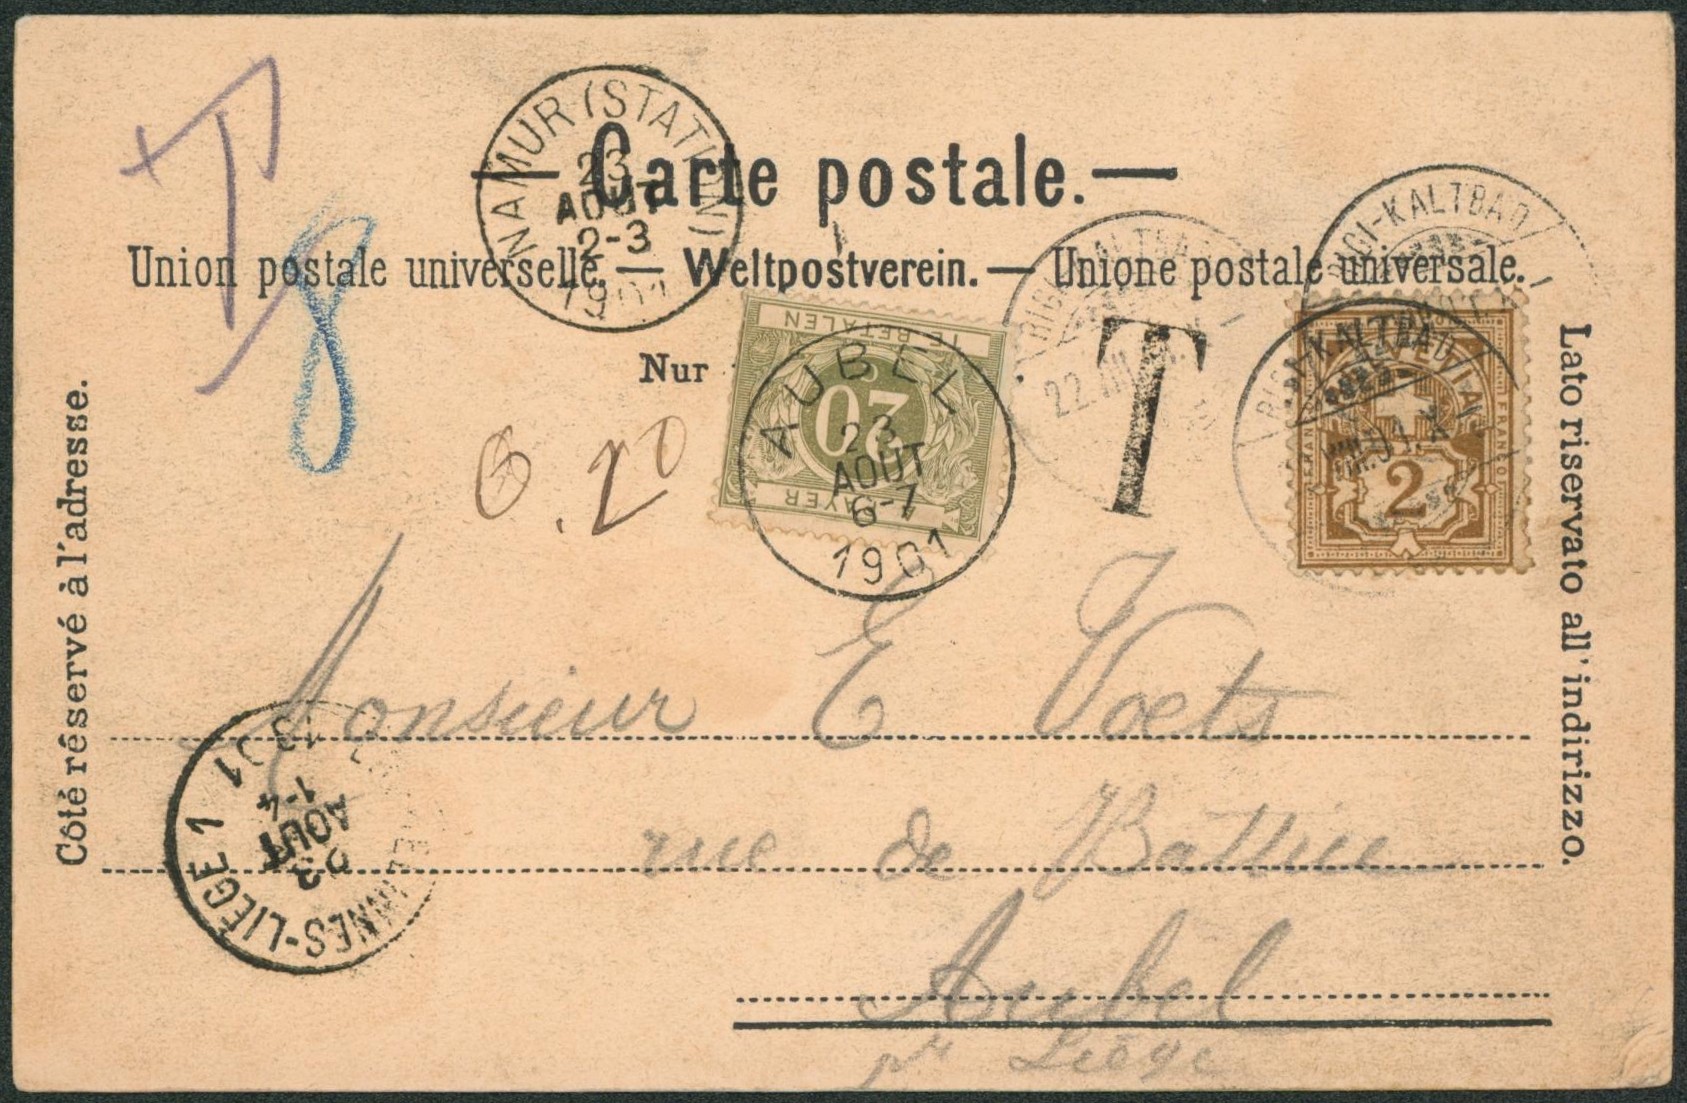 T
8
NAMUR (STATION)
23
AOUT
2-3
1901
— Carte postale. —
Union postale universelle. — Weltpostverein. — Unione postale universale.
RIGI-KALTBAD
RIGI-KALTBAD
22.VIII.
RIGI-KALTBAD
VIII.01.X
Nur
0.20
TE BETALEN
20
A PAYER
AUBEL
23
AOUT
6-7
1901
T
HELVETIA
FRANCO
2
Côté réservé à l'adresse.
Lato riservato all'indirizzo.
Monsieur E Voets
rue de Battice
Aubel
pr Liége
NNES-LIÉGE 1
23
AOUT
1-4
1901